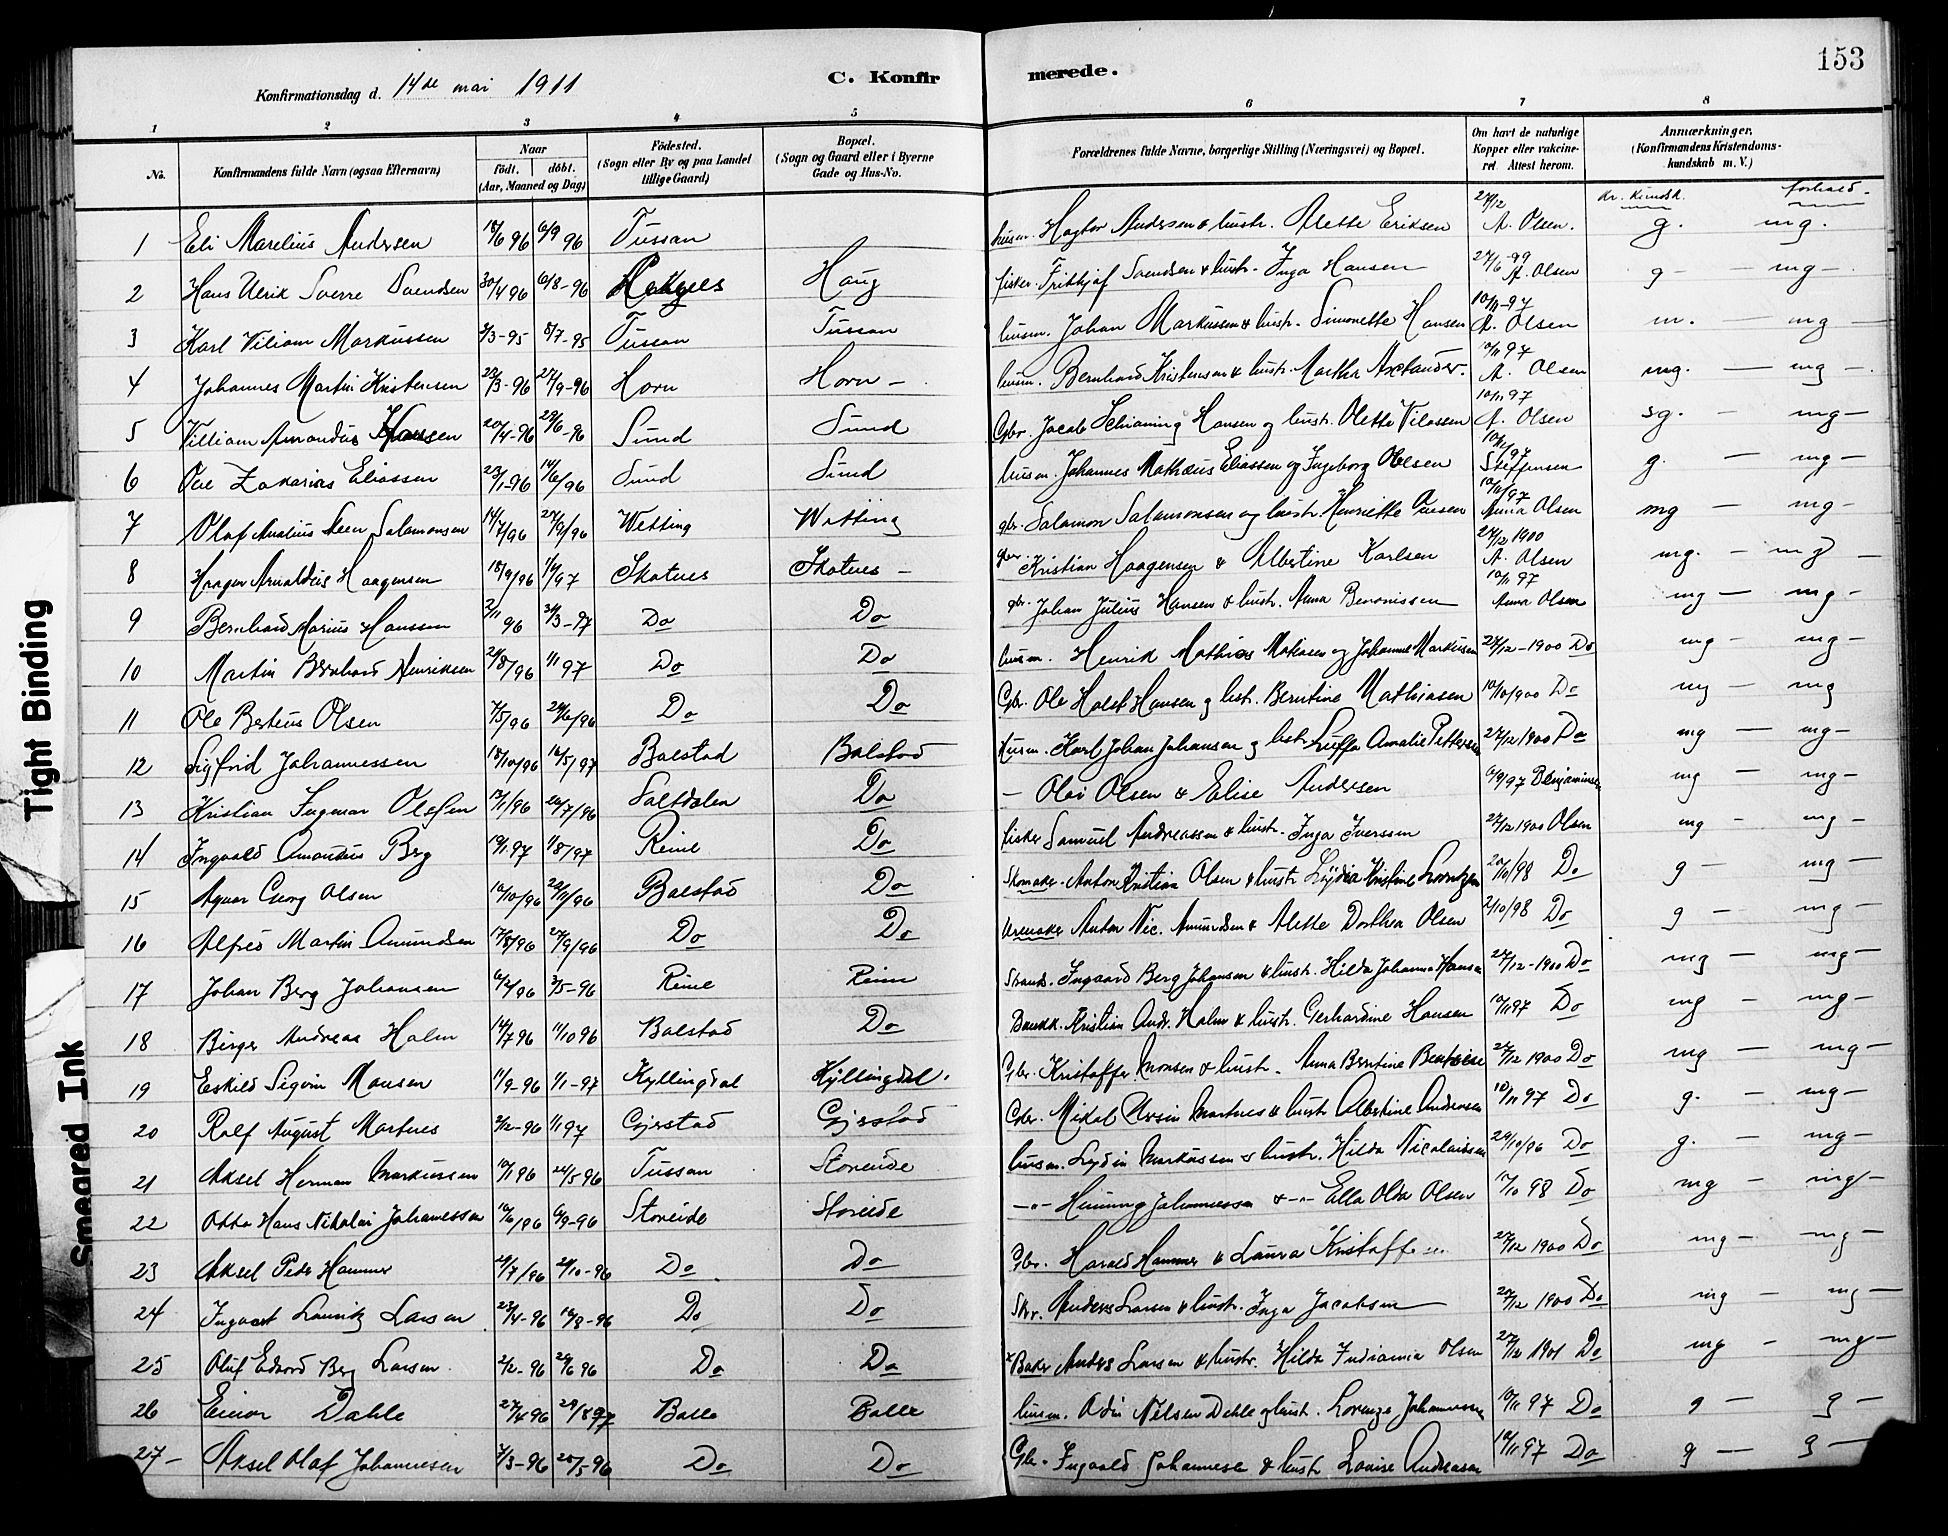 153
Konfirmationsdag d. 14de mai 1911
C. Konfirmerede.
1 2 3 4 5 6 7 8
No. Konfirmandens fulde Navn (ogsaa Efternavn) Naar født. døbt. (Aar, Maaned og Dag) Fødested. (Sogn eller By og paa Landet tillige Gaard) Bopæl. (Sogn og Gaard eller i Byerne Gade og Hus-No. Forældrenes fulde Navne, borgerlige Stilling (Næringsvei) og Bopæl. Om havt de naturlige Kopper eller vakcineret Attest herom. Anmærkninger. (Konfirmandens Kristendomskundskab m. V.)
kr. kundsk. forhold
1 Eli Marelius Andersen 18/6 96 6/9 96 Tussan husm. Hagbar Andersen & hustr. Alette Eriksen 27/12 A. Olsen. g. mg.
2 Hans Ulrik Sverre Svendsen 30/4 96 6/8-96 Haug fisker Frithjof Svendsen & hustr. Inga Hansen 27/6-99 A. Olsen g - mg -
3 Karl Viliam Markussen 3/3-95 8/7-95 Tussan Tussan husm. Johan Markussen & hustr. Simonette Hansen 10/11-97 A. Olsen m. mg
4 Johannes Martin Kristensen 22/3-96 27/9-96 Horn Horn - husm. Bernhard Kristensen & hustr. Martha 10/11 97 A. Olsen mg. - mg -
5 Villiam Amandus Hansen 20/4-96 29/6-96 Sund Sund Gbr. Jacob Schianing Hansen og hustr. Olette 10/11 97 A. Olsen sg. - mg -
6 Ove Zakarias Eliassen 23/1-96 14/6/96 Sund Sund husm. Johannes Mathæus Eliassen og Ingeborg Olsen 10/11/97 Steffensen g. - mg -
7 Olaf Analius Steen Salamonsen 14/7/96 27/9/96 Wetting Wetting gbr. Salamon Salamonsen og hustr. Henriette 10/11/97 Anna Olsen mg - mg -
8 Haagen Arnoldus Haagensen 18/9/96 1/1/97 Skotnes Skotnes - gbr. Kristian Haagensen & Albertine Karlsen 27/12 1900 A. Olsen mg. - mg -
9 Bernhard Marius Hansen 2/11 96 21/3-97 Do Do gbr. Johan Julius Hansen & hustr. Anna Beronissen 10/11 97 Anna Olsen mg - mg -
10 Martin Bernhard Henriksen 21/8/96 1/1 97 Do Do husm. Henrik Mathias Matiasen og Johanne Markussen 27/12-1900 Do mg - mg -
11 Ole Berteus Olsen 7/5/96 28/6/96 Do Do Gbr. Ole Holst Hansen g hstr. Berntine Mathiasen 10/10/900 Do mg - mg
12 Sigfrid Johannessen 18/10/96 16/5/97 Balstad Balstad Husm. Karl Johan Johansen g hstr Luffa Amalie Pettersen 27/12 1900 Do mg - mg -
13 Kristian Ingmar Olafsen 13/1/96 26/7/96 Saltdalen Do - Olai Olsen & Elise Andersen 6/9/97 Benjaminsen mg - mg -
14 Ingvald Amandus Berg 19/1 97 1/8/97 Reine Do fisker Samuel Andreassen & hustr. Inga Iversen 27/12 1900 Olsen mg - mg -
15 Agnar Georg Olsen 10/10/96 22/11/96 Balstad Do Skomaker Anton Kristian Olsen & hustr Lydia Kristine Lorntzen 20/10/98 Do g - mg -
16 Alfred Martin Amundsen 17/8/96 27/9/96 Do Do Urmaker Anton Nic. Amundsen & Alette Dorthea Olsen 2/10/98 Do g - mg -
17 Johan Berg Johansen 6/4/96 3/5-96 Reine Reine Strands. Ingvard Berg Johansen & hustr. Hilda Johanna Hansen 27/12-1900 Do mg - mg -
18 Birger Andreas Holm 14/7 96 11/10 96 Balstad Do Kristian Andr. Holm & hustr. Gerhardine Hansen 10/11 97 Do mg - mg -
19 Eskild Segvin Monsen 11/9-96 1/1-97 Kyllingdal Kyllingdal. Gbr. Kristoffer Monsen & hustr. Anna Berntine 27/12 1900 Do mg - mg -
20 Ralf August Martnes 2/12-96 1/1 97 Gjerstad Gjerstad Gbr. Mikal Ursin Martnes & hustr Albertine Andersen 10/11 97 Do g. - mg -
21 Aksel Herman Markussen 10/1 96 24/5 96 Tussan Storeide husm. Lydin Markussen & hustr. Hilda Nicolaisen 29/10/96 Do g. - mg -
22 Otto Hans Nikolai Johanessen 10/6/96 6/9-96 Storeide Storeide -"- Henning Johannessen & -"- Ella Olda Olsen 10/10 98 Do mg - mg -
23 Aksel Peder Hammer 29/7/96 21/10-96 Do Do Gbr. Harald Hammer & Laura Kristoffersen 27/12 1900 Do mg - mg -
24 Ingvart Lauritz Larsen 23/4-96 16/8-96 Do Do Skr. Anders Larsen & hustr. Inga Jacobsen 27/12 1900 Do mg - mg -
25 Oluf Edvard Berg Larsen 2/2-96 29/6 96 Do Do Baker Anders Larsen & hustr. Hilda Indianna Olsen 27/12 1901 Do mg - mg -
26 Einar Dahle 27/4 96 29/8 97 Balle Balle husm. Odin Nilsen Dahle g hustr. Lorenze Johannessen 10/11 97 Do g - g -
27 - Aksel Olaf Johannesen 7/3-96 25/5-96 Do Do Gbr. Ingvald Johannesen & hustr Lovise Andreasen 10/11 97 Do g - g -
Tight Binding
Smeared Ink